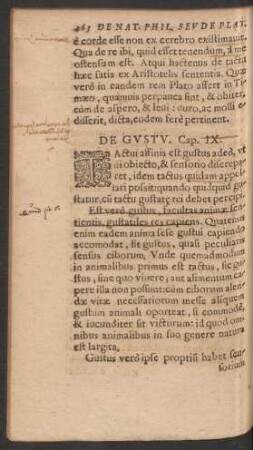 263 DE NAT. PHIL. SEV DE PLAT.
è corde esse non ex cerebro existimauit.
Qua de re ibi, quid esset tenendum, à me
ostensum est. Atqui hactenus de tactu
hæc satis ex Aristotelis sententia. Quæ
verò in eandem rem Plato asserit in Ti-
mæo, quamuis perpauca sint, & obiter,
cùm de aspero, & leui: duro, ac molli e-
disserit, dicta, eodem ferè pertinent.
DE GVSTV. Cap. IX.
TActui affinis est gustus adeò, vt
ni obiecto, & sensorio discrepa-
ret, idem tactus quidam appel-
lari possit: quando quidquid gu-
statur, cũ tactu gustatę rei debet percipi.
Est verò gustus, facultas animæ sen-
tientis, gustatiles res capiens. Quatenus
enim eadem anima sese gustui capiendo
accomodat, sit gustus, quasi peculiaris
sensus ciborum. Vnde quemadmodum
in animalibus primus est tactus, sic gu-
stus, sine quo viuere; aut alimentum ca-
pere illa non possunt: cùm ciborum alen-
dæ vitæ necessariorum inesse aliquem
gustum animali oporteat, si commodè,
& iucunditer sit victurum: id quod om-
nibus animalibus in suo genere natura
est largita.
Gustus verò ipse propriũ habet sen-
sorium